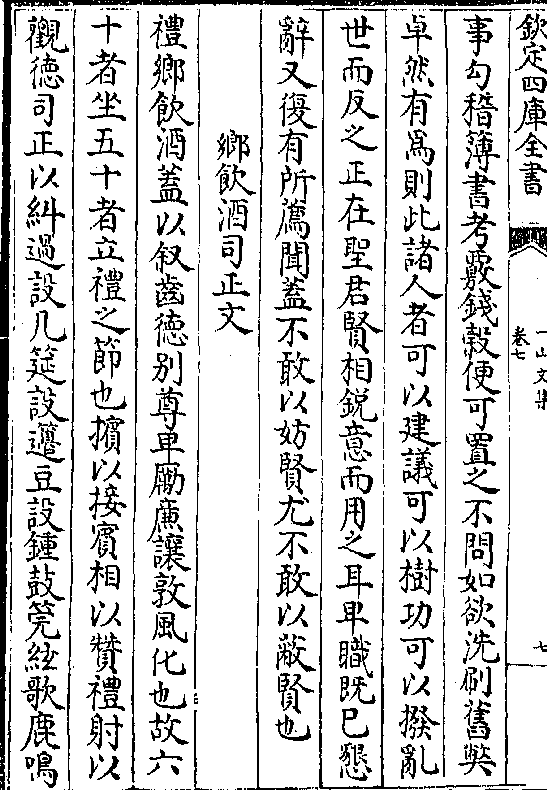 欽定四庫全書
一山文集
卷七
七
事勾稽簿書考覈錢穀便可置之不問如欲洗刷舊獘
卓然有為則此諸人者可以建議可以樹功可以撥亂
世而反之正在聖君賢相鋭意而用之耳卑職既已懇
辭又復有所薦聞蓋不敢以妨賢尤不敢以蔽賢也
鄉飲酒司正文
禮鄉飲酒蓋以叙齒德别尊卑勵廉讓敦風化也故六
十者坐五十者立禮之節也擯以接賓相以贊禮射以
觀德司正以糾過設几筵設籩豆設鍾鼓筦絃歌鹿鳴